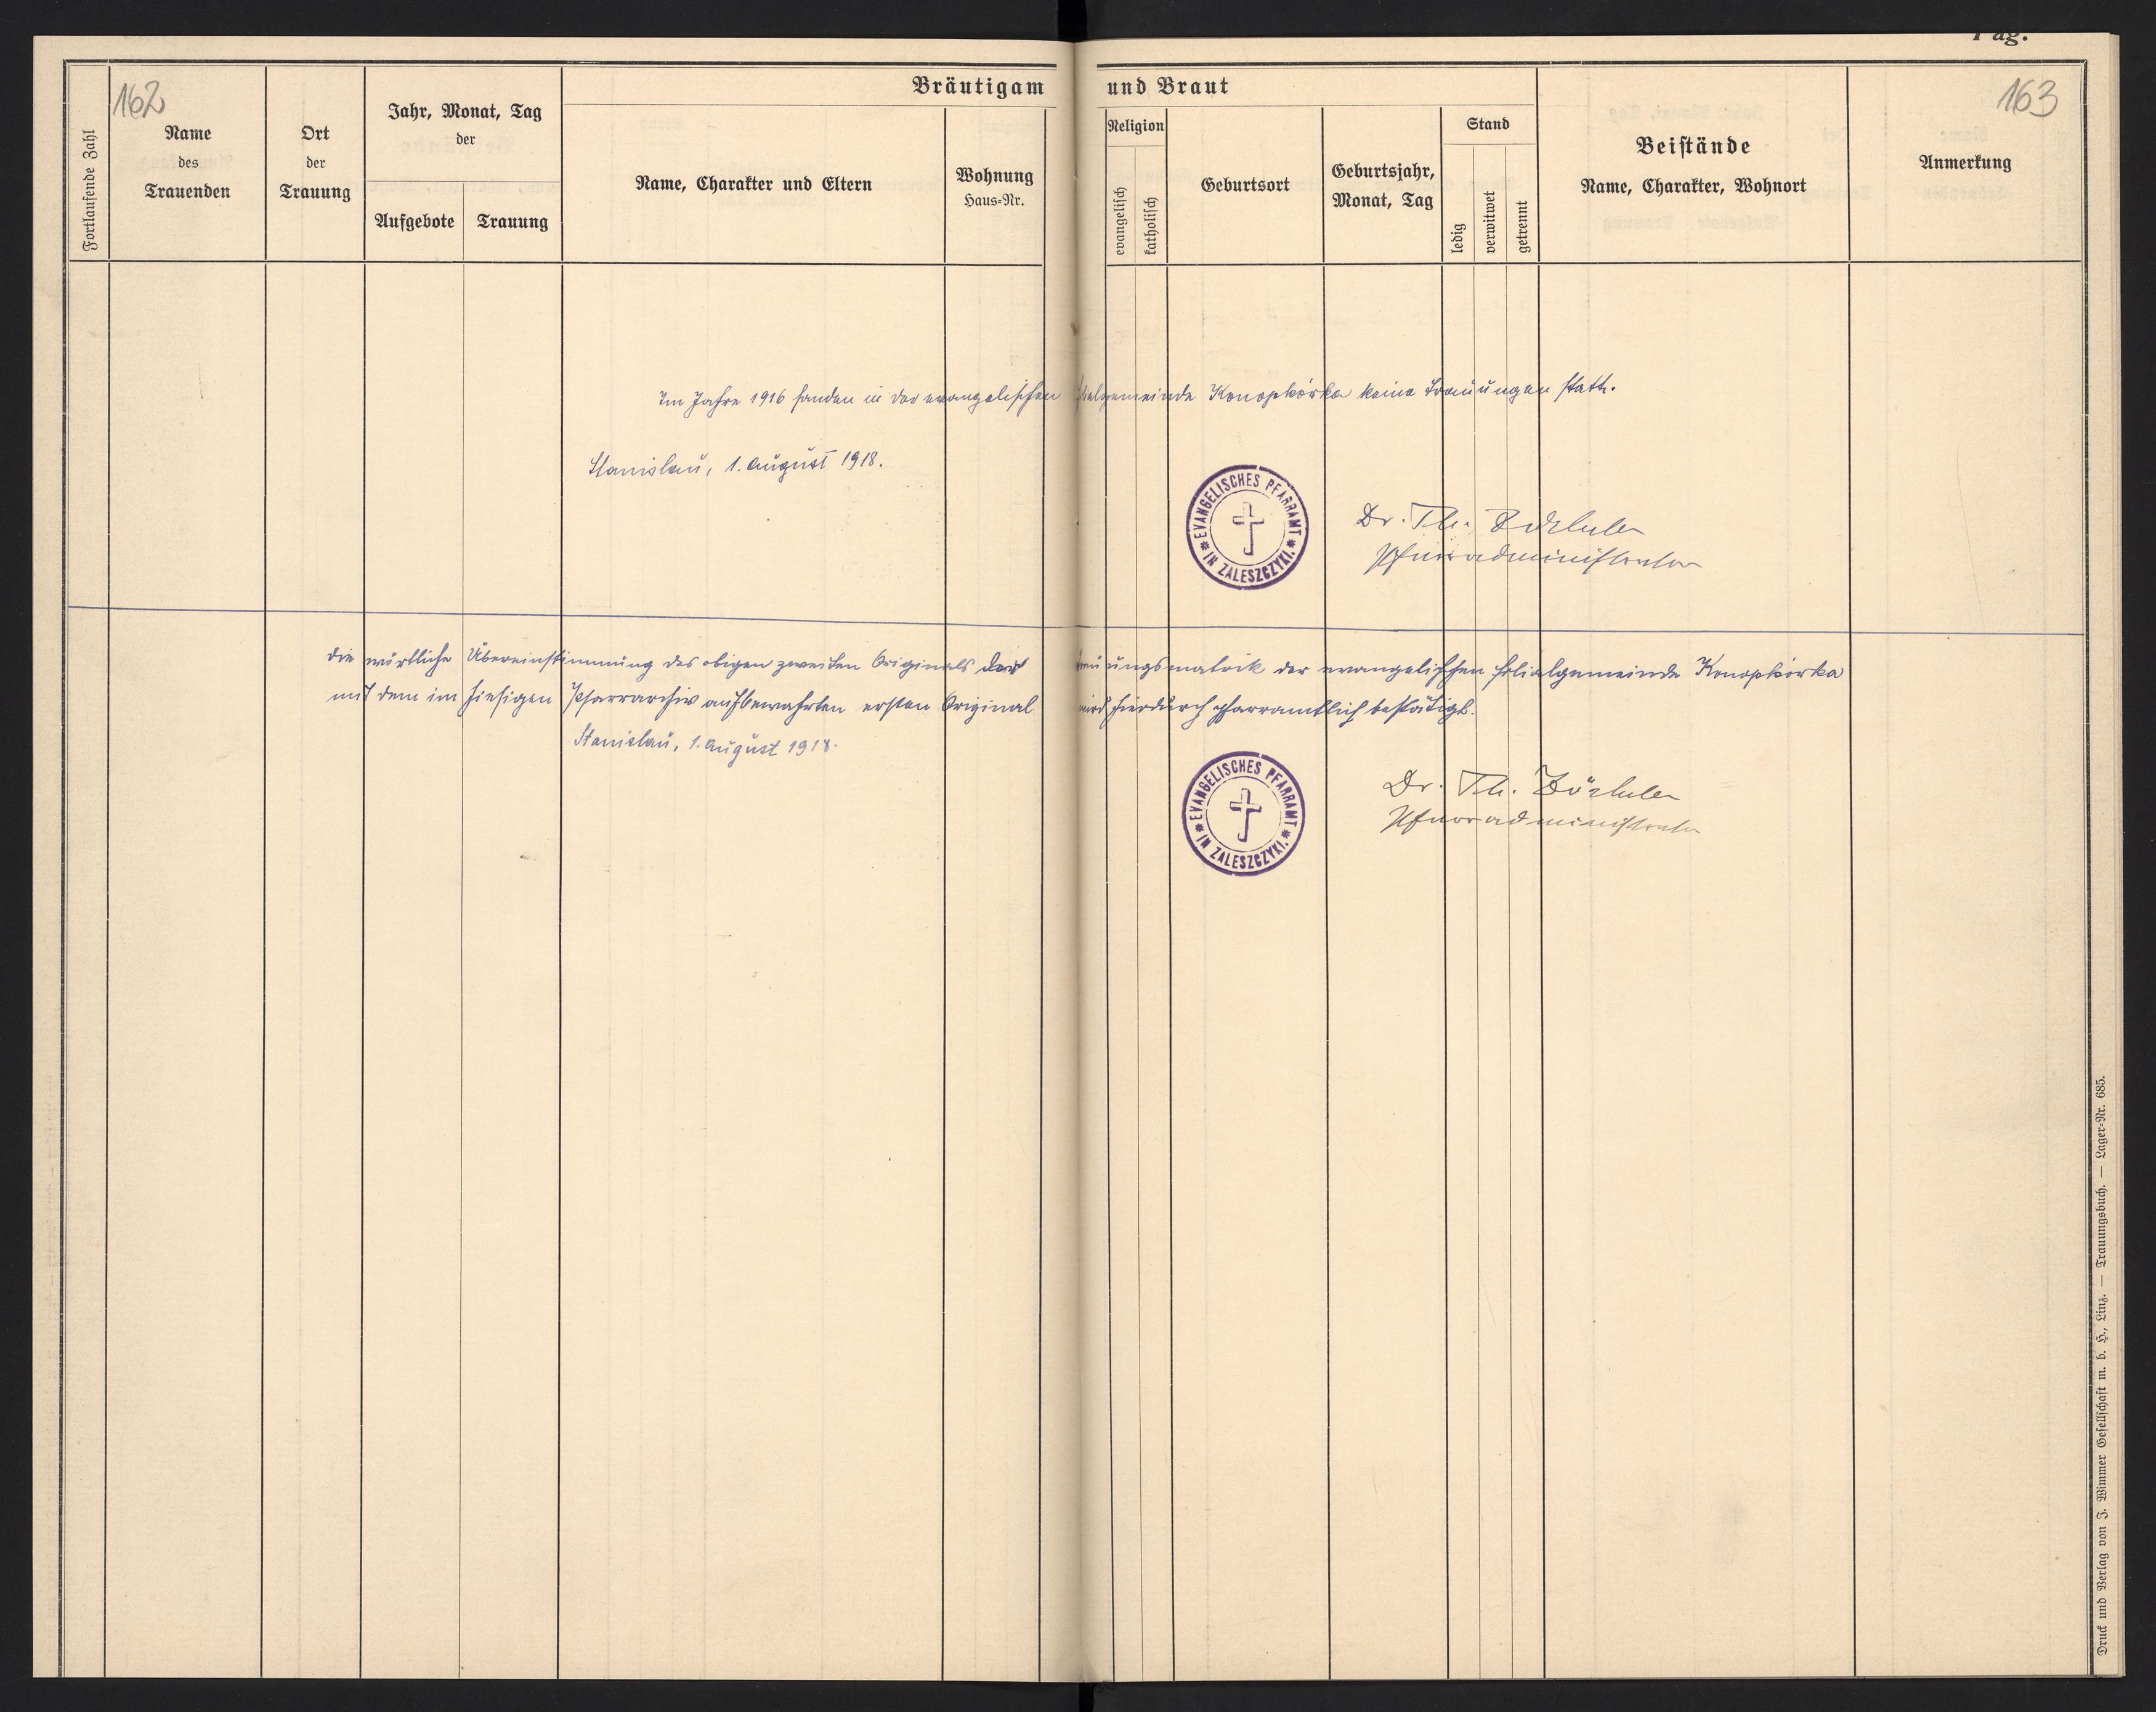 Pag.
162
163
Bräutigam und Braut
Fortlaufende Zahl
Name
des
Trauenden
Ort
der
Trauung
Jahr, Monat, Tag
der
Aufgebote
Trauung
Name, Charakter und Eltern
Wohnung
Haus=Nr.
Religion
evangelisch
katholisch
Geburtsort
Geburtsjahr,
Monat, Tag
Stand
ledig
verwitwet
getrennt
Beistände
Name, Charakter, Wohnort
Anmerkung
Im Jahre 1916 fanden in der evangelischen Filialgemeinde Konopkówka keine Trauungen statt.
Stanislau, 1. August 1918.
EVANGELISCHES PFARRAMT
IN ZALESZCZYKI.
Dr. Th. Zöckler
Pfarradministrator
Die wörtliche Übereinstimmung des obigen zweiten Originals der Trauungsmatrik der evangelischen Filialgemeinde Konopkówka
mit dem im hiesigen Pfarrarchiv aufbewahrten ersten Original wird hierdurch pfarramtlich bestätigt.
Stanislau, 1. August 1918.
EVANGELISCHES PFARRAMT
IN ZALESZCZYKI.
Dr. Th. Zöckler
Pfarradministrator
Druck und Verlag von J. Wimmer Gesellschaft m. b. H., Linz. — Trauungsbuch. — Lager=Nr. 685.